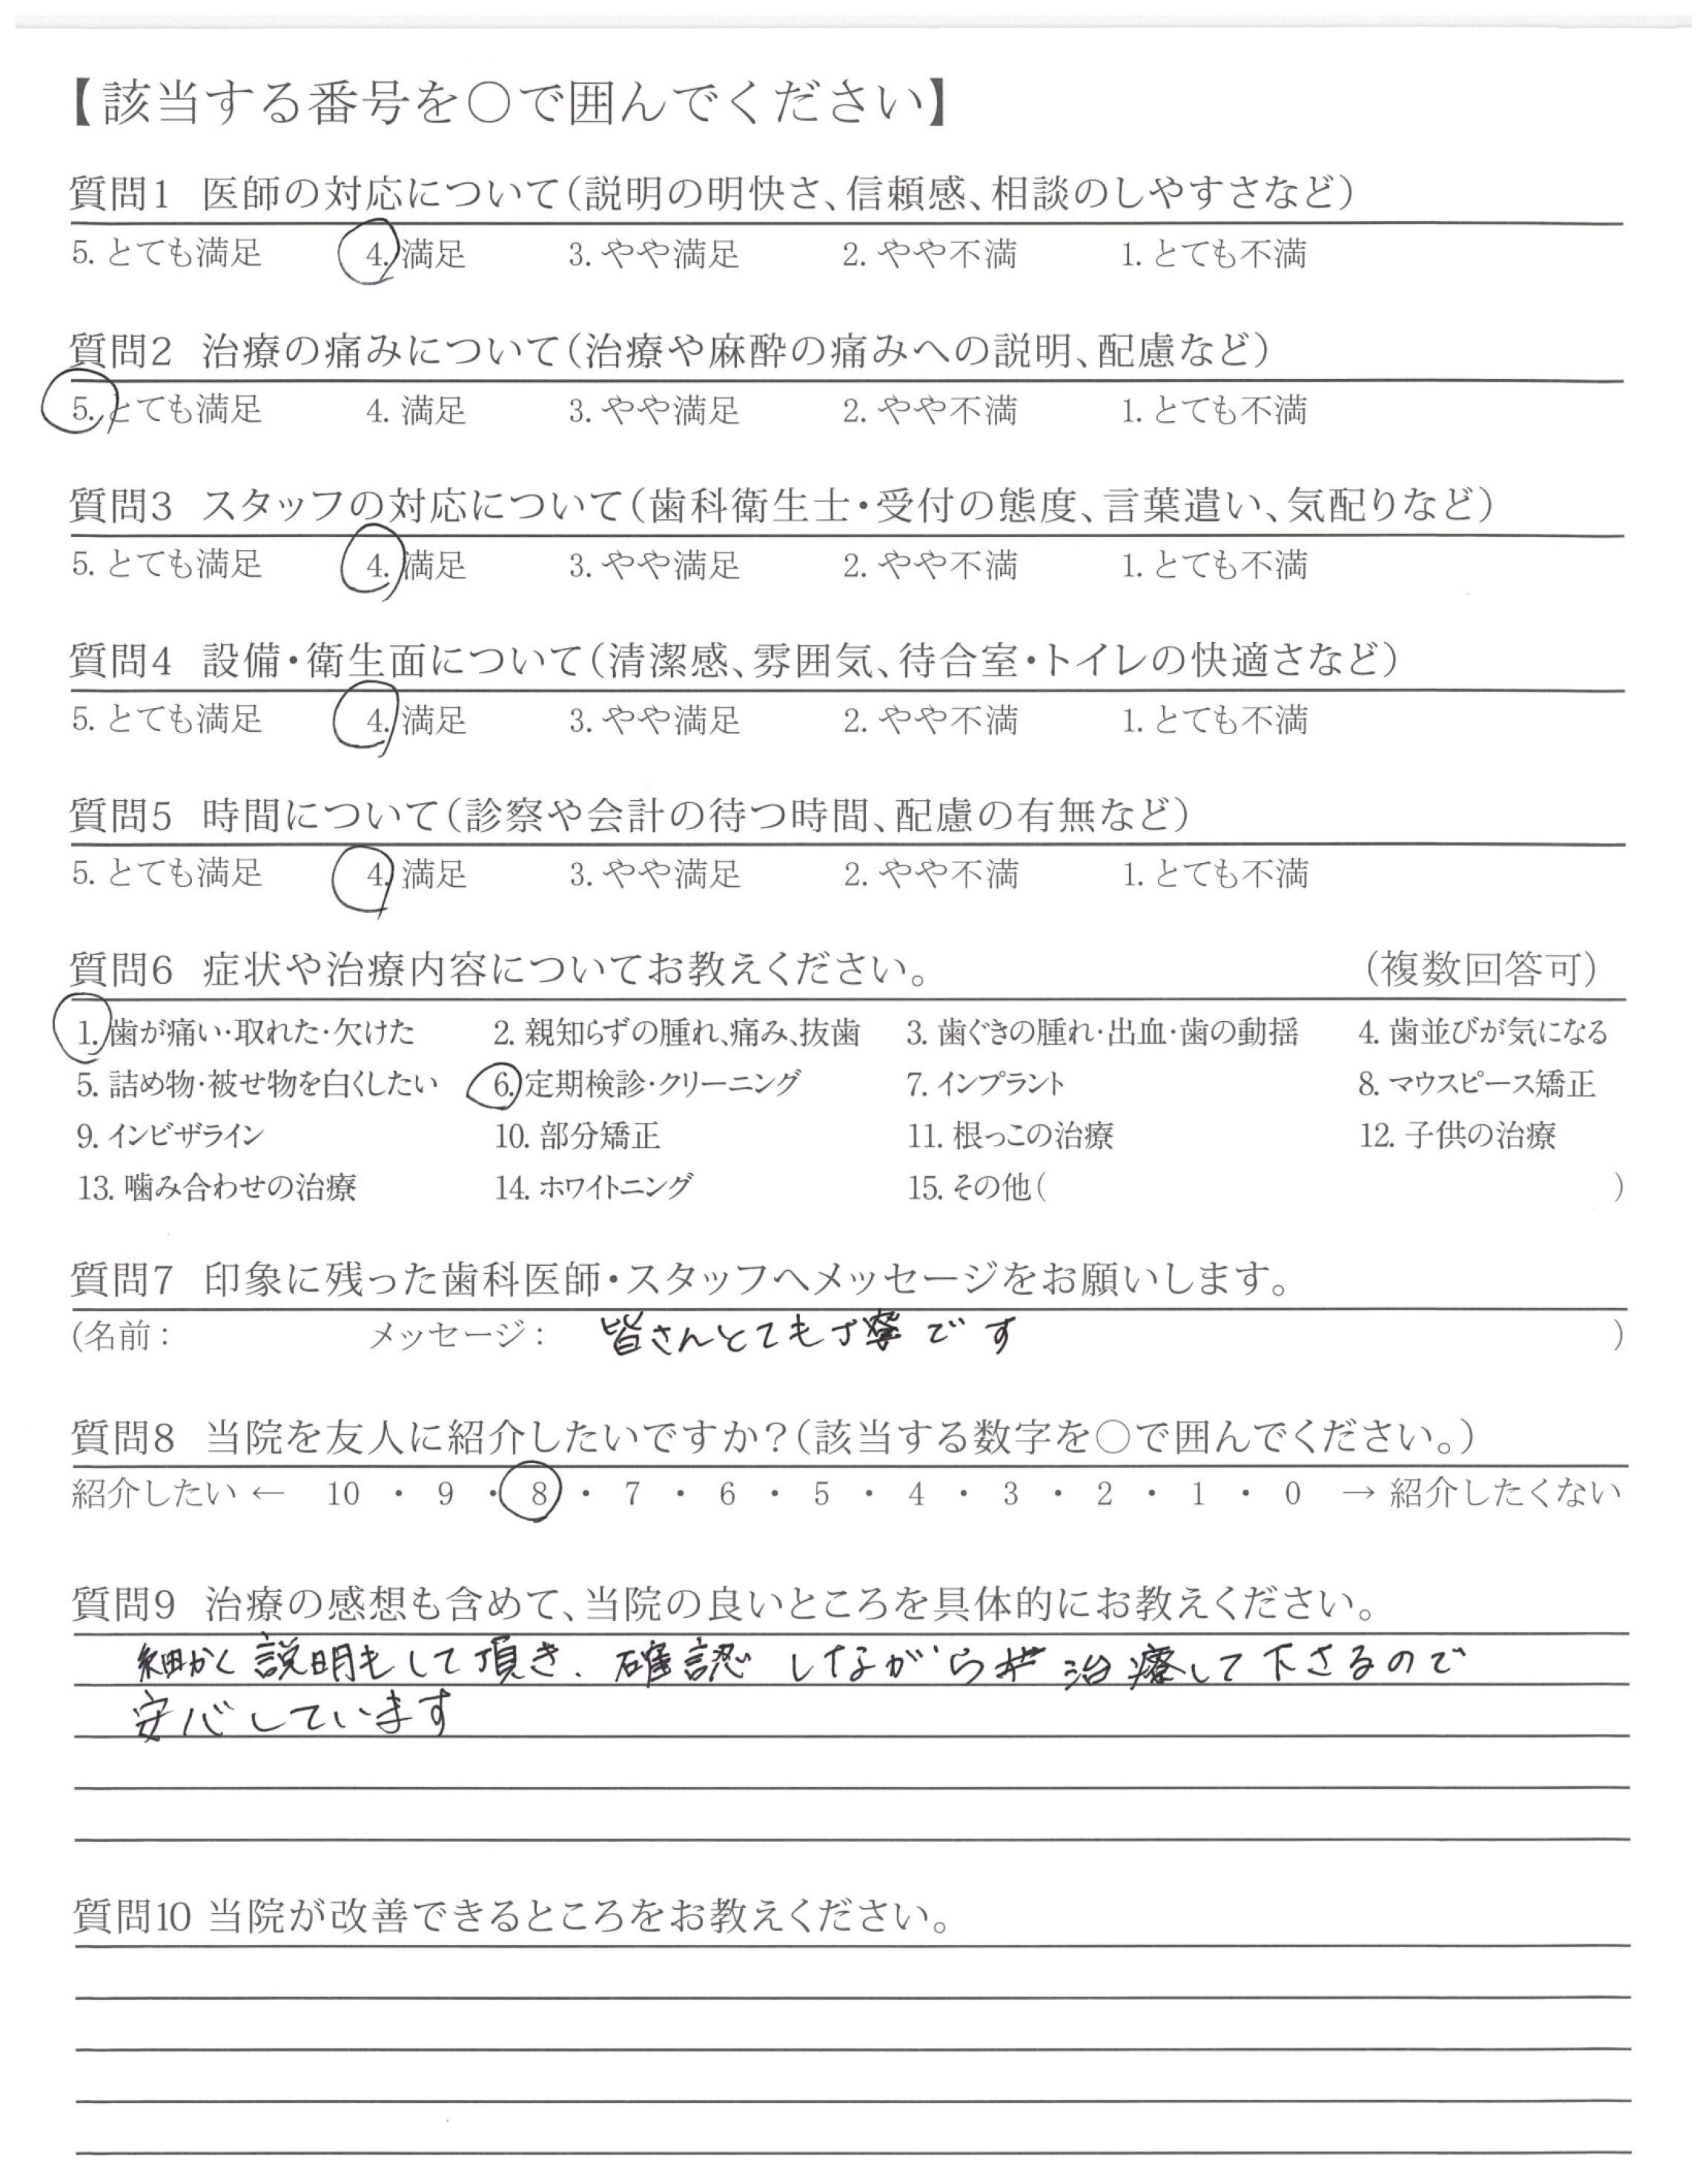 【該当する番号を○で囲んでください】
質問1 医師の対応について(説明の明快さ、信頼感、相談のしやすさなど)
5. とても満足 4. 満足 3. やや満足 2. やや不満 1. とても不満
質問2 治療の痛みについて(治療や麻酔の痛みへの説明、配慮など)
5. とても満足 4. 満足 3. やや満足 2. やや不満 1. とても不満
質問3 スタッフの対応について(歯科衛生士・受付の態度、言葉遣い、気配りなど)
5. とても満足 4. 満足 3. やや満足 2. やや不満 1. とても不満
質問4 設備・衛生面について(清潔感、雰囲気、待合室・トイレの快適さなど)
5. とても満足 4. 満足 3. やや満足 2. やや不満 1. とても不満
質問5 時間について(診察や会計の待つ時間、配慮の有無など)
5. とても満足 4. 満足 3. やや満足 2. やや不満 1. とても不満
質問6 症状や治療内容についてお教えください。 (複数回答可)
1. 歯が痛い・取れた・欠けた 2. 親知らずの腫れ、痛み、抜歯 3. 歯ぐきの腫れ・出血・歯の動揺 4. 歯並びが気になる
5. 詰め物・被せ物を白くしたい 6. 定期検診・クリーニング 7. インプラント 8. マウスピース矯正
9. インビザライン 10. 部分矯正 11. 根っこの治療 12. 子供の治療
13. 噛み合わせの治療 14. ホワイトニング 15. その他( )
質問7 印象に残った歯科医師・スタッフへメッセージをお願いします。
(名前: メッセージ: 皆さんとても丁寧です )
質問8 当院を友人に紹介したいですか?(該当する数字を○で囲んでください。)
紹介したい ← 10 ・ 9 ・ 8 ・ 7 ・ 6 ・ 5 ・ 4 ・ 3 ・ 2 ・ 1 ・ 0 → 紹介したくない
質問9 治療の感想も含めて、当院の良いところを具体的にお教えください。
細かく説明もして頂き、確認しながら治療して下さるので
安心しています
質問10 当院が改善できるところをお教えください。